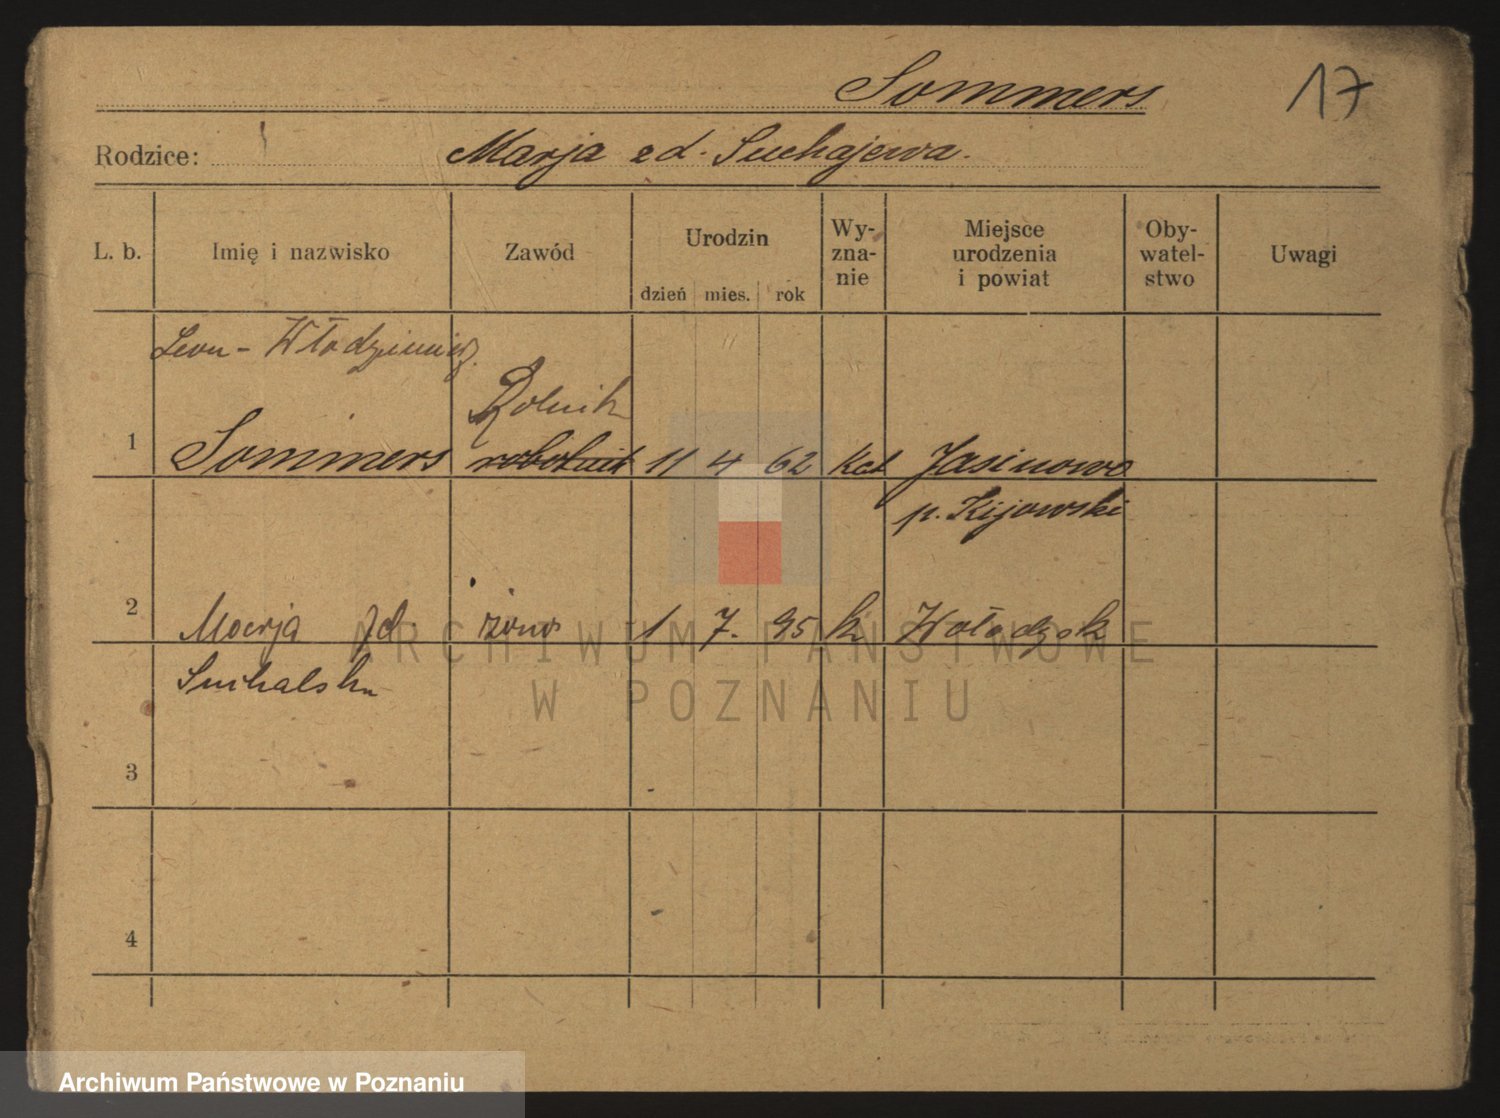 Sommers
17
Rodzice: Marja zd. Suchajewa.
L. b. Imię i nazwisko Zawód Urodzin Wy-zna-nie Miejsce urodzenia i powiat Oby-watel-stwo Uwagi
dzień mies. rok
Leon - Włodzimierz
Rolnik
1 Sommers robotnik 11 4 62 kat Jasinowo
p. Kijowski
2 Marja zd. żona 1 7. 95 k Wołodzk
Suchalska
3
4
ARCHIWUM PAŃSTWOWE
W POZNANIU
Archiwum Państwowe w Poznaniu